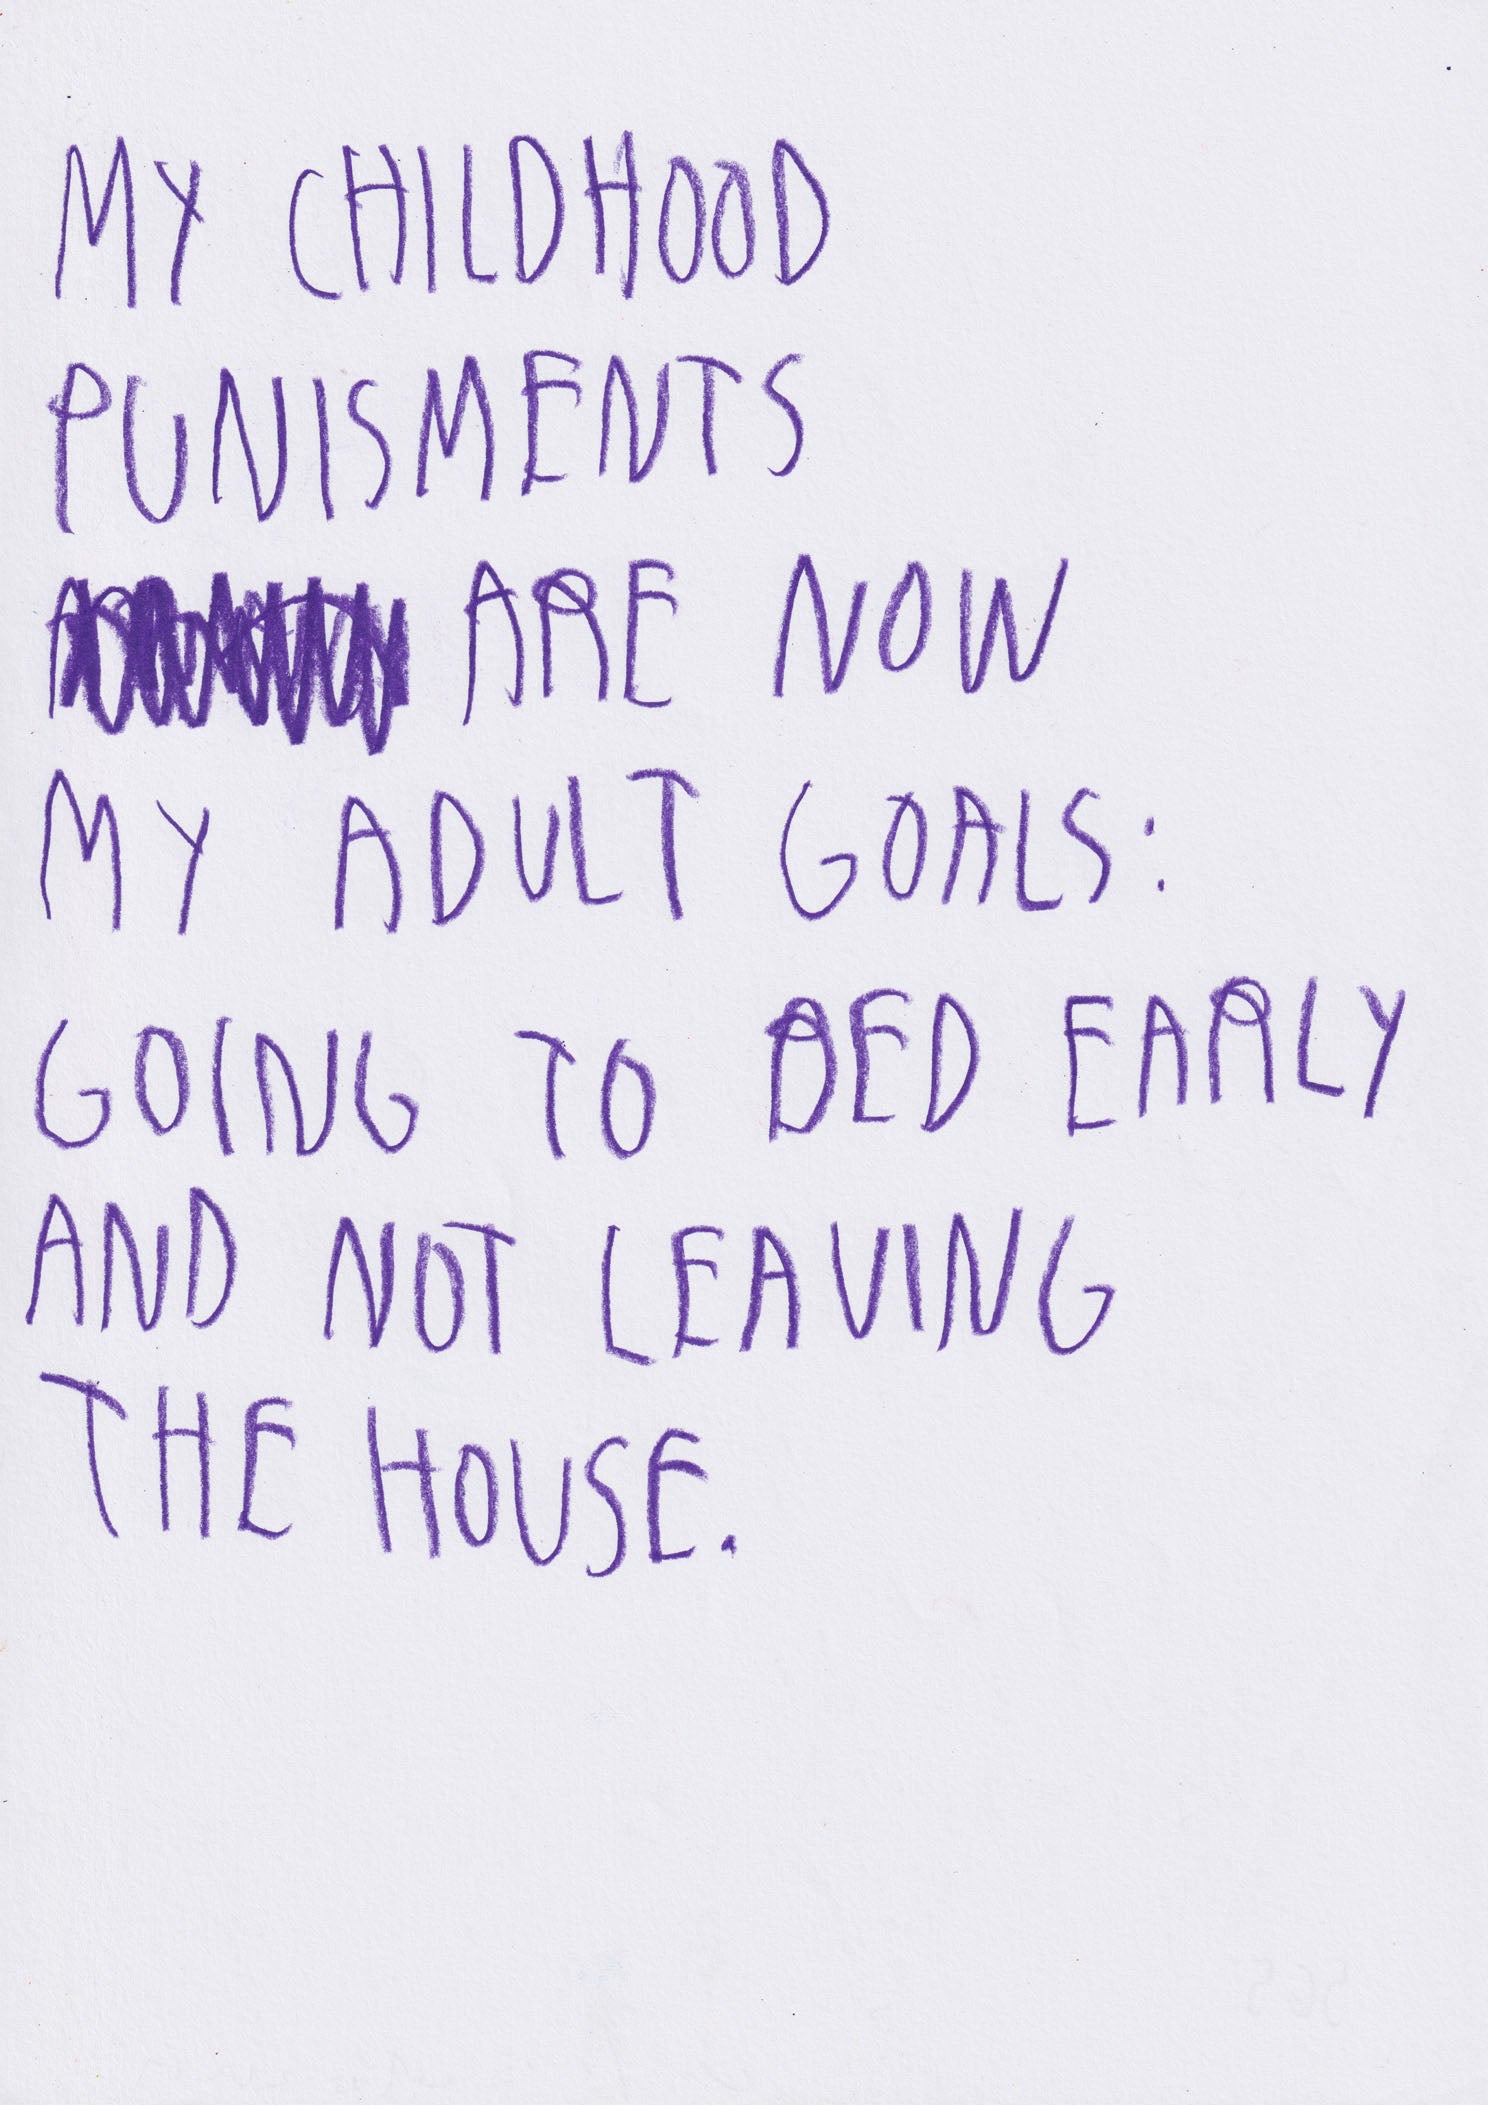 MY CHILDHOOD
PUNISMENTS
ARE NOW
MY ADULT GOALS:
GOING TO BED EARLY
AND NOT LEAVING
THE HOUSE.